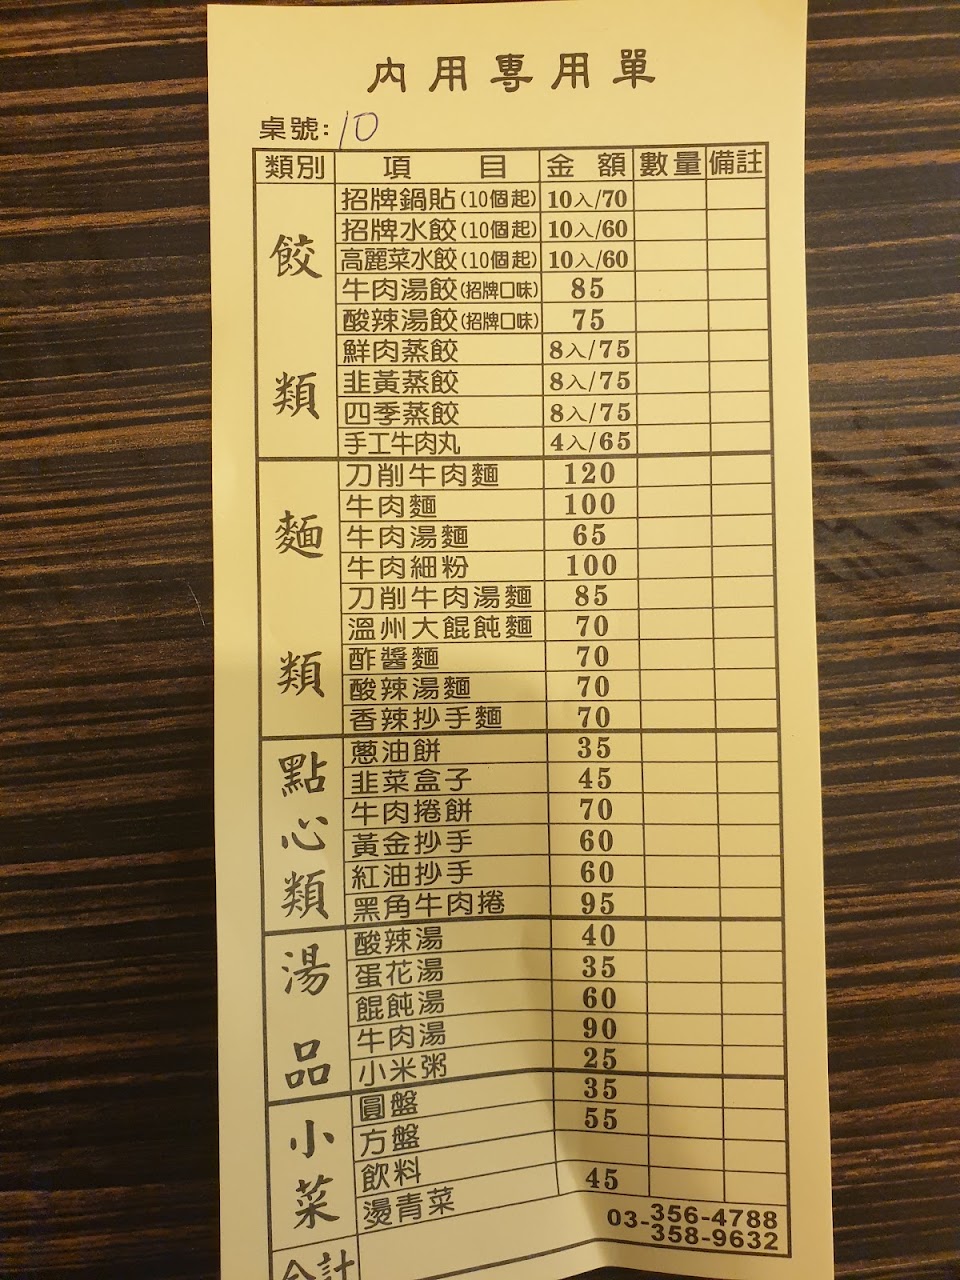 內用專用單
桌號: 10
類別 項目 金額 數量 備註
餃類
招牌鍋貼(10個起) 10入/70
招牌水餃(10個起) 10入/60
高麗菜水餃(10個起) 10入/60
牛肉湯餃(招牌口味) 85
酸辣湯餃(招牌口味) 75
鮮肉蒸餃 8入/75
韭黃蒸餃 8入/75
四季蒸餃 8入/75
手工牛肉丸 4入/65
麵類
刀削牛肉麵 120
牛肉麵 100
牛肉湯麵 65
牛肉細粉 100
刀削牛肉湯麵 85
溫州大餛飩麵 70
酢醬麵 70
酸辣湯麵 70
香辣抄手麵 70
點心類
蔥油餅 35
韭菜盒子 45
牛肉捲餅 70
黃金抄手 60
紅油抄手 60
黑角牛肉捲 95
湯品
酸辣湯 40
蛋花湯 35
餛飩湯 60
牛肉湯 90
小米粥 25
小菜
圓盤 35
方盤 55
飲料
燙青菜 45
合計
03-356-4788
358-9632